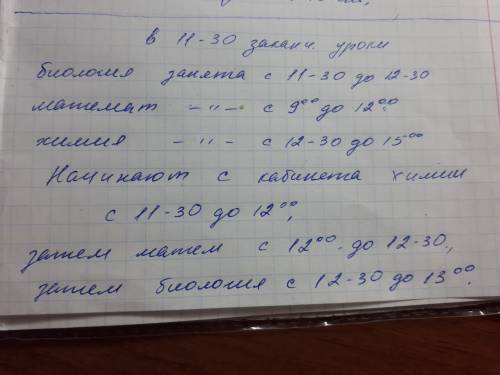 в 11-30 заканч. уроки
биология занята с 11-30 до 12-30
математ -"- с 9⁰⁰ до 12⁰⁰.
химия -"- с 12-30 до 15⁰⁰
Начинают с кабинета химии
с 11-30 до 12⁰⁰,
затем матем с 12⁰⁰. до 12-30,
затем биология с 12-30 до 13⁰⁰.